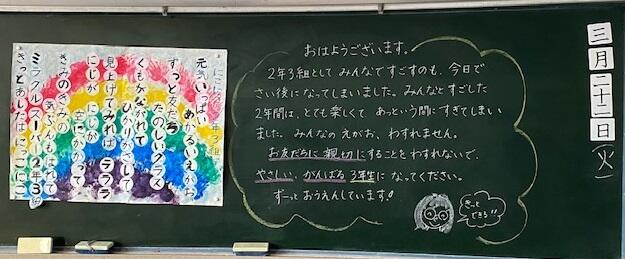 三月二十二日(火)
おはようございます。
2年3組として みんなですごすのも、今日で
さい後になってしまいました。みんなとすごした
2年間は、とても楽しくて あっという間にすぎてしまい
ました。みんなの えがお、わすれません。
お友だちに 親切にすることをわすれないで、
やさしい、がんばる 3年生に なってください。
ずーっと おうえんしています!
きっと
できる!!
元気いっぱい
あかるいえがお
ずっと友だち
たのしいクラス
くもがながれて
ひかりがさして
見上げてみれば ラララ
にじが にじが
空にかかって
きみのきみの
気ぶんもはれて
きっとあしたはにこにこ
ミラクルスーパー2年3組